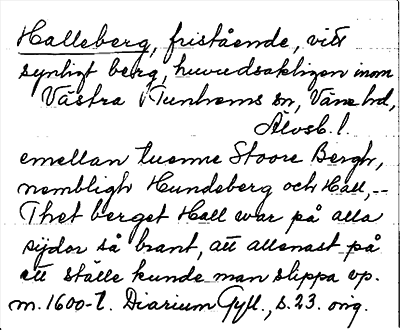 Halleberg, fristående, vitt
synligt berg, huvudsakligen inom
Västra Tunhems sn, Väne hd,
Älvsb. l.
emellan tuenne Stoore Bergh,
nembligh Hundeberg och Hall, --
Thet berget Hall war på alla
sijdor så brant, att allenast på
ett ställe kunde man slippa op.
m. 1600-t. Diarium Gyll., s. 23. orig.